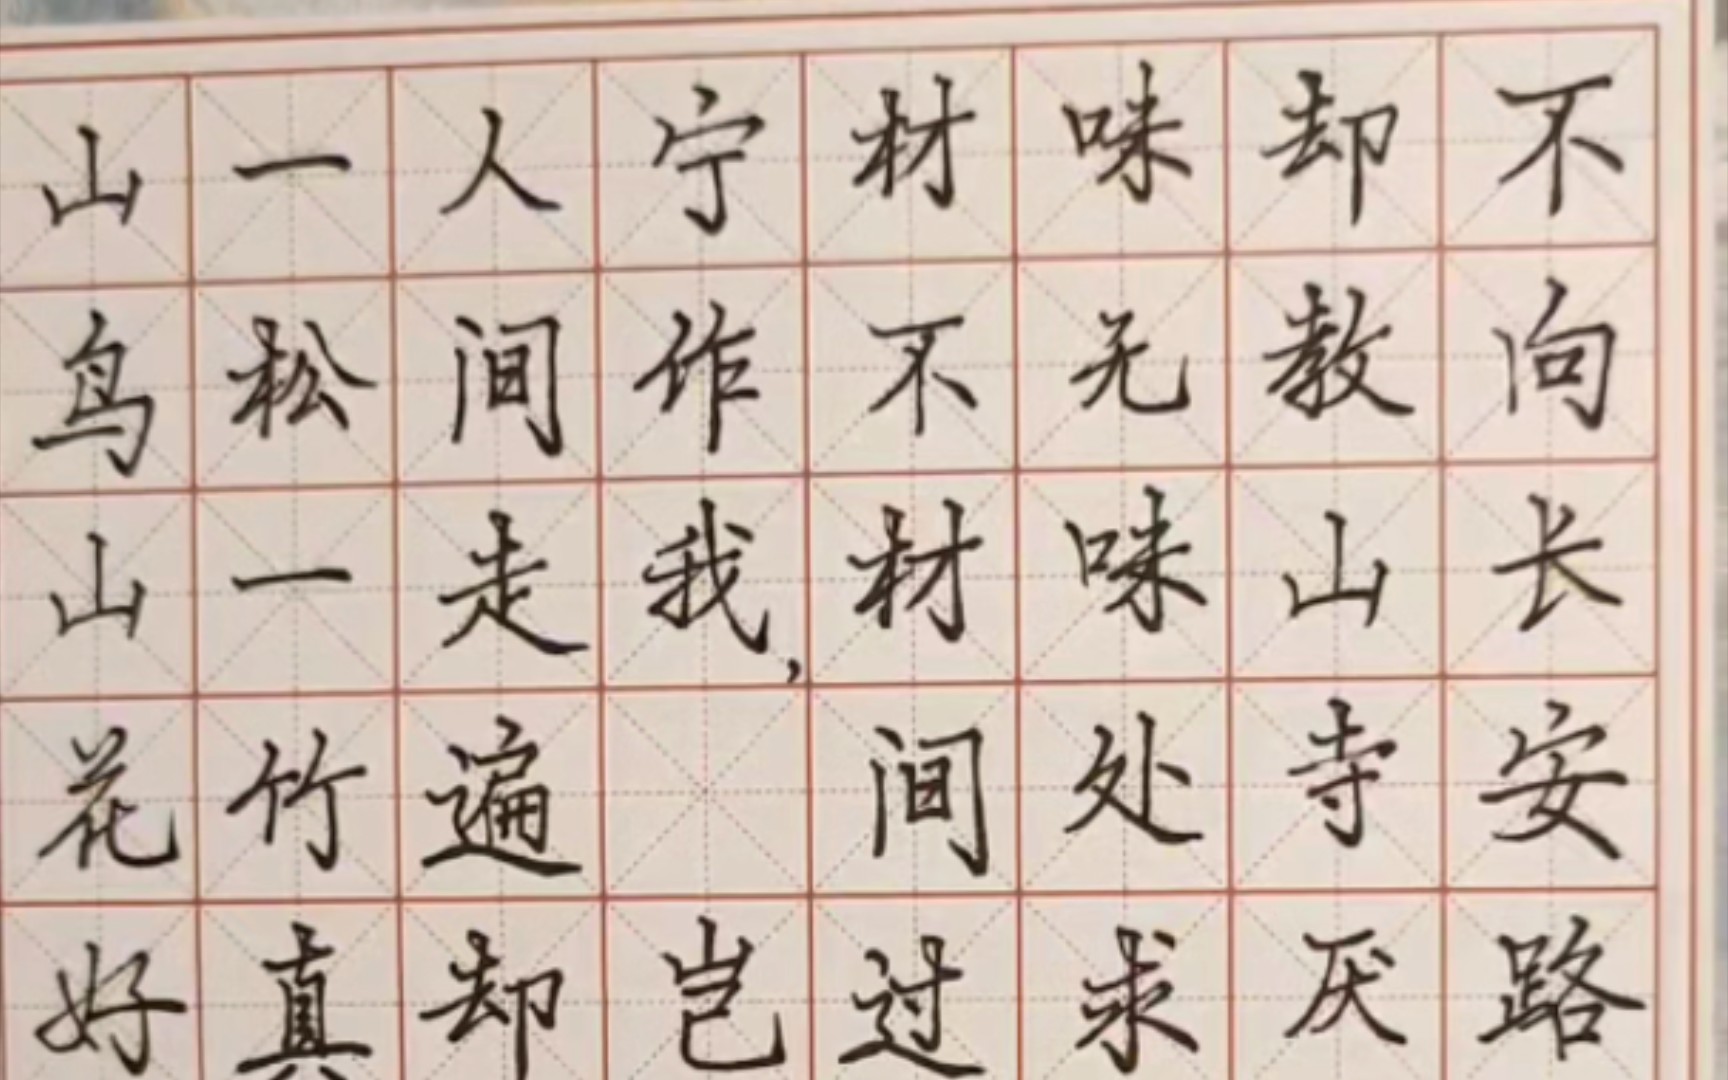 不向长安路
却教山寺厌
味无味处求
材不材间过
宁作我，岂
人间走遍却
一松一竹真
山鸟山花好